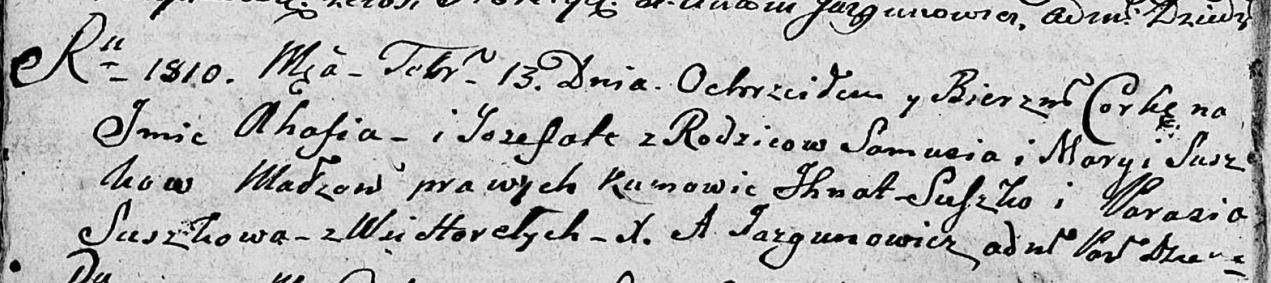 X. Adam Jazgunowicz, adm.
Ru 1810. Mca Febr. 13. Dnia. Ochrzciłem y Bierzm. Corkę na
Jmie Ahafia i Jozefate z Rodzicow Samusia i Maryi Susz
kow Małżow prawych Kumowie Jhnat Suszko i Parasia
Suszkowa z Wsi Horelych X. A Jazgunowicz adm. Par.